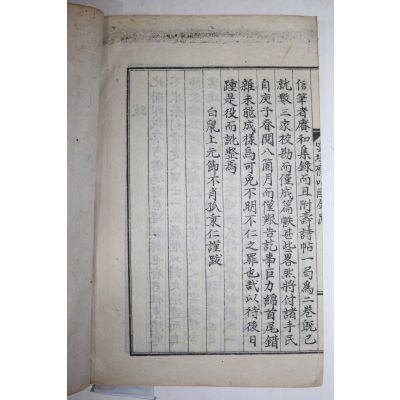 信筆者賡和集錄而且附壽詩帖一局爲二卷旣已
就數三家校勘而僅成篇帙甚些畧然將付諸手民
自庚子春閱八箇月而僅艱告訖事巨力綿首尾錯
雜未能成樣烏可免不明不仁之罪也哉以待後日
踵是役而訛整焉
白鼠上元節不肖孤東仁謹跋